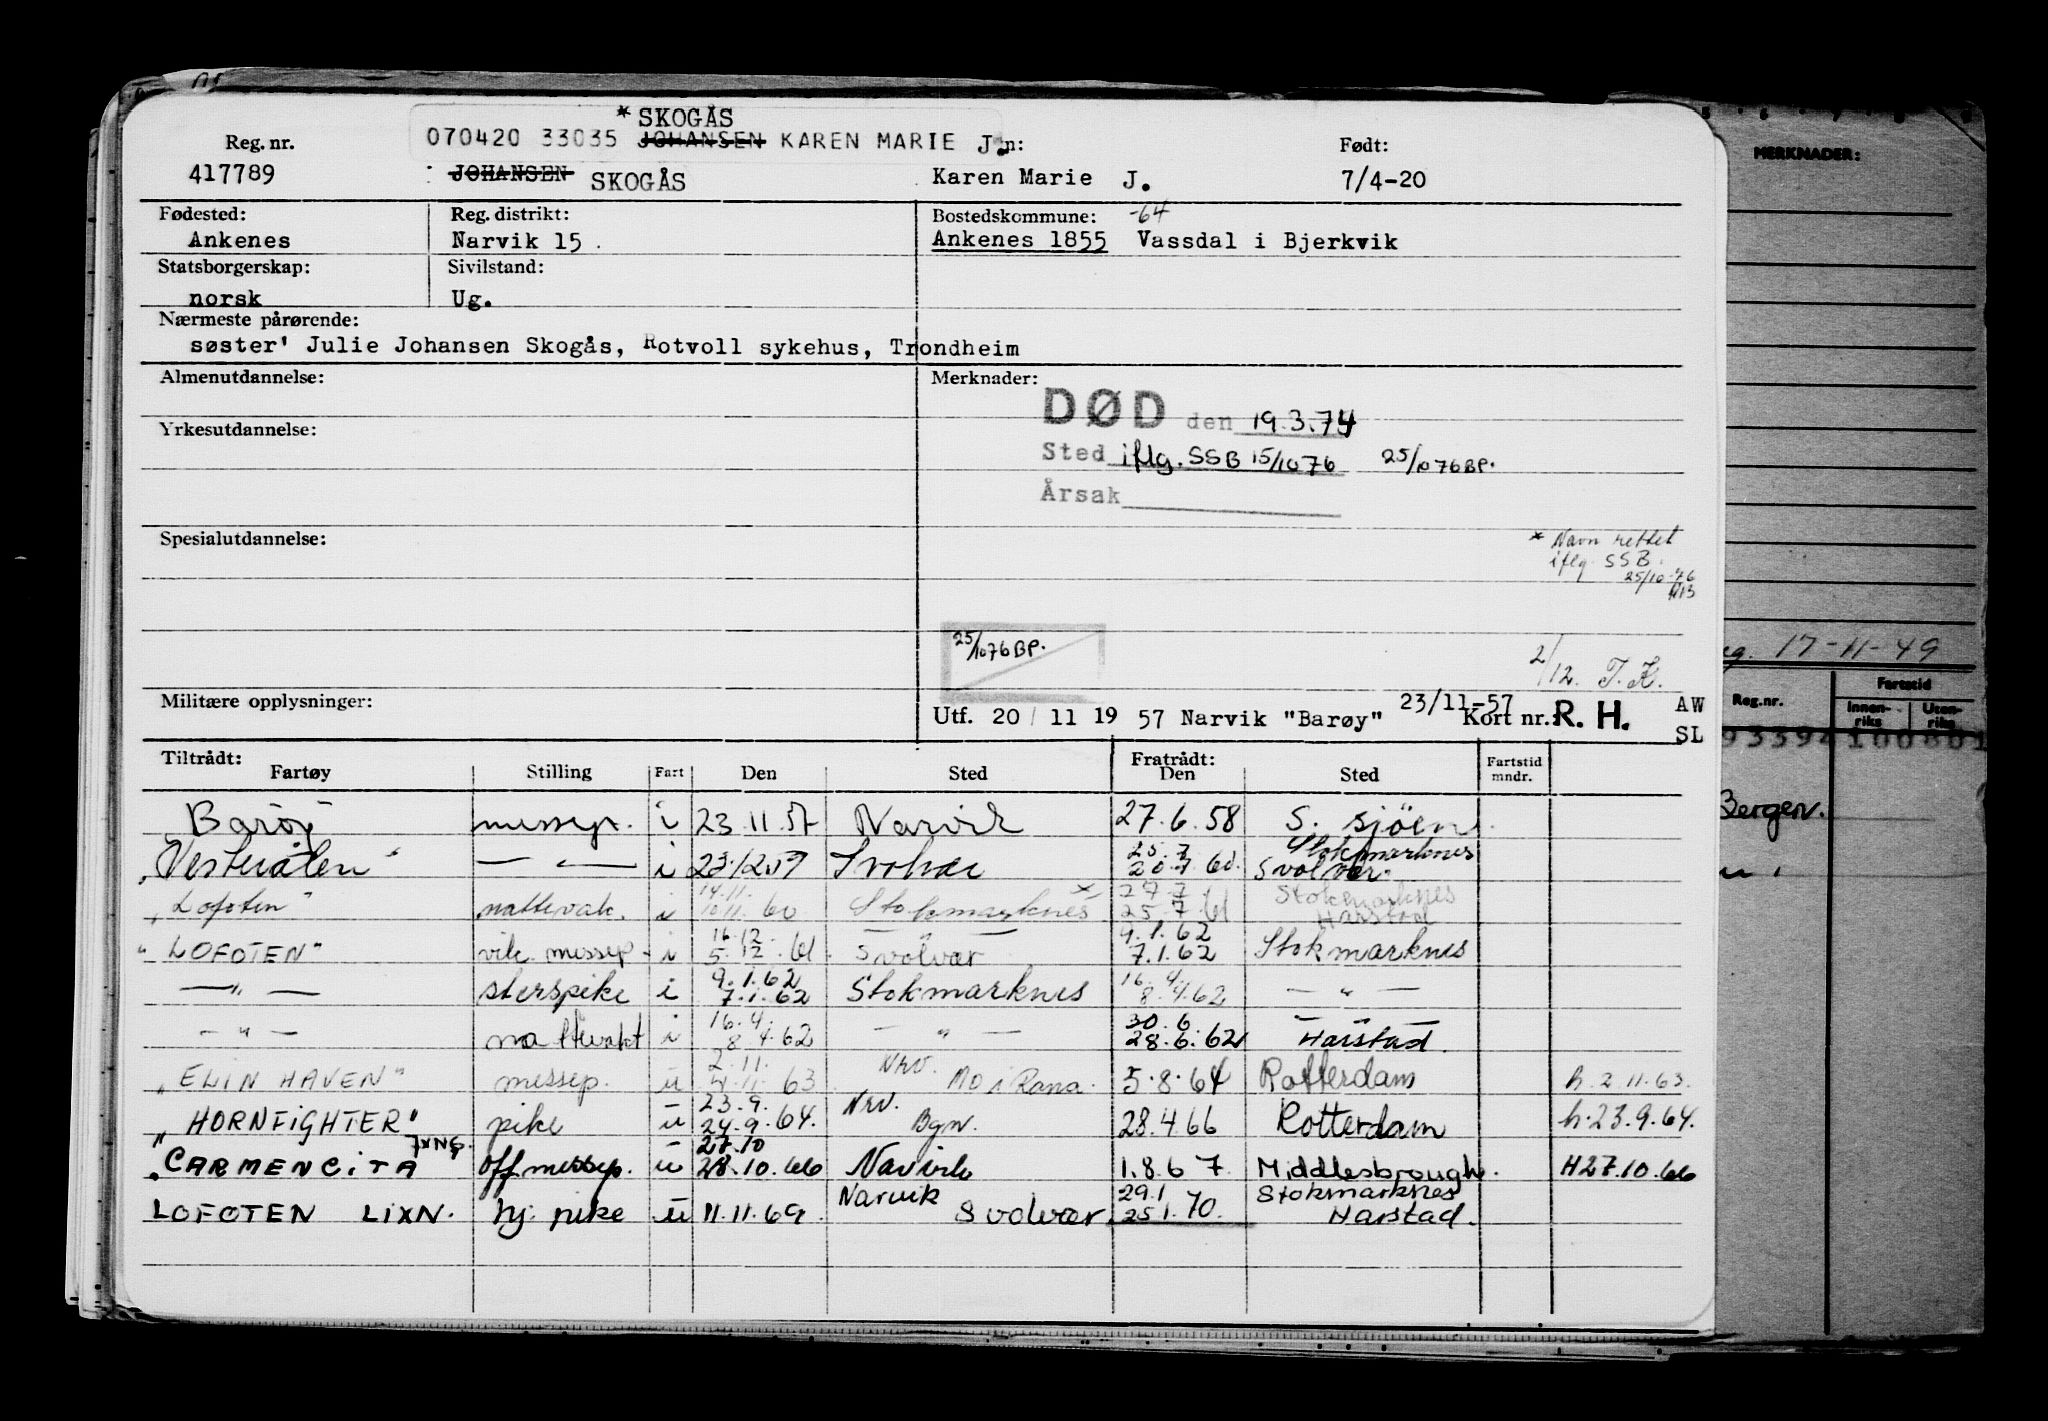 * SKOGÅS
Reg. nr. 070420 33035 JOHANSEN KAREN MARIE J.n: Født:
417789 JOHANSEN SKOGÅS Karen Marie J. 7/4-20
Fødested: Reg. distrikt: Bostedskommune: -64
Ankenes Narvik 15 . Ankenes 1855 Vassdal i Bjerkvik
Statsborgerskap: Sivilstand:
norsk Ug.
Nærmeste pårørende:
søster' Julie Johansen Skogås, Rotvoll sykehus, Trondheim
Almenutdannelse: Merknader:
DØD den 19.3.74
Yrkesutdannelse:
Sted iflg. SSB 15/10 76 25/10 76 BP.
Årsak
Spesialutdannelse:
* Navn rettet
iflg. SSB.
25/10-76
25/10 76 BP.
2/12. T.K.
Militære opplysninger:
Utf. 20 / 11 19 57 Narvik "Barøy" 23/11-57 Kort nr. R. H. AW
SL
Tiltrådt: Fratrådt:
Fartøy Stilling Fart Den Sted Den Sted Fartstid mndr.
Barøy messep. i 23.11.57 Narvik 27.6.58 S. sjöen.
25.7 Stokmarknes
"Vesterålen" — " — i 23/12 59 Svolvær 20.7.60. Svolvær.
14.11. x 27.7 Stokmarknes
"Lofoten" nattevak. i 10.11.60 Stokmarknes 25.7.61 Harstad
16.12 9.1.62
"LOFOTEN" vik. messep. i 5.12.61. Svolvær 7.1.62 Stokmarknes
9.1.62 16.4
— " — sterspike i 7.1.62 Stokmarknes 8.4.62 — " —
16.4. 30.6 — " —
— " — nattevakt i 8.4.62 — " — 28.6.62 Harstad.
2.11. Nrv.
"ELIN HAVEN" messep. u 4.11.63 Mo i Rana. 5.8.64 Rotterdam h. 2.11.63.
23.9. Nrv.
"HORNFIGHTER" pike u 24.9.64. Bgn. 28.4.66 Rotterdam h. 23.9.64.
27.10
"CARMENCITA off messep. u 28.10.66 Narvik 1.8.67. Middlesbrough. H 27.10.66
Narvik 29.1 Stokmarknes
LOFOTEN LIXN. hj. pike u 11.11.69. Svolvær. 25.1.70. Harstad.
MERKNADER:
17-11-49
Reg.nr. Fartstid
Innen-riks Uten-riks
Bergen.